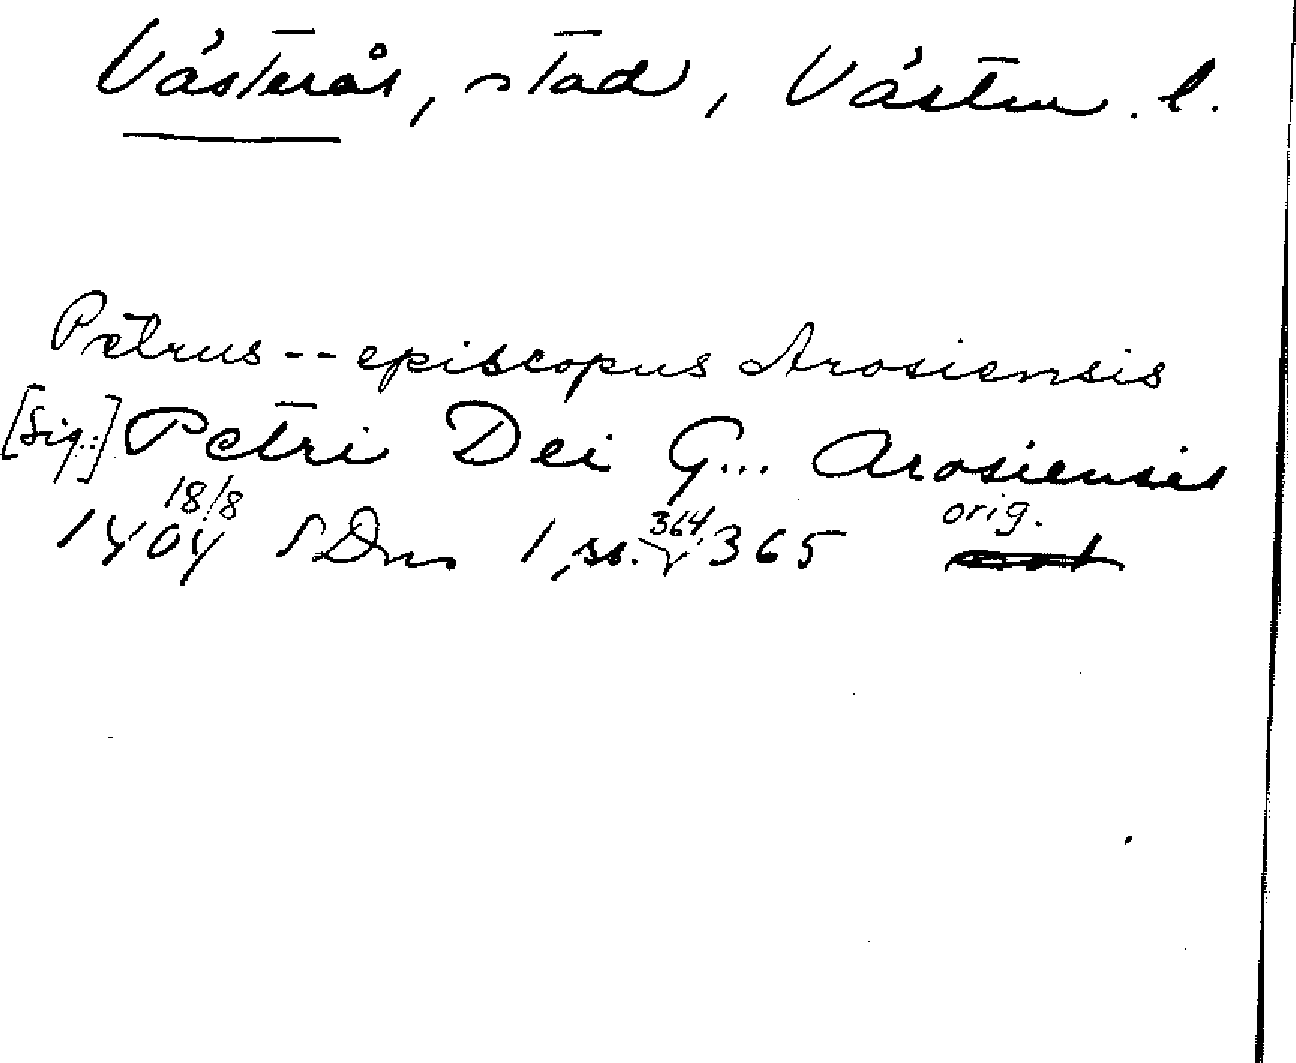 Västerås, stad, Västm. l.
Petrus -- episcopus Arosiensis
[Sig.:] Petri Dei G... Arosiensis
18/8 orig.
1404 SDns 1, ss. 364, 365